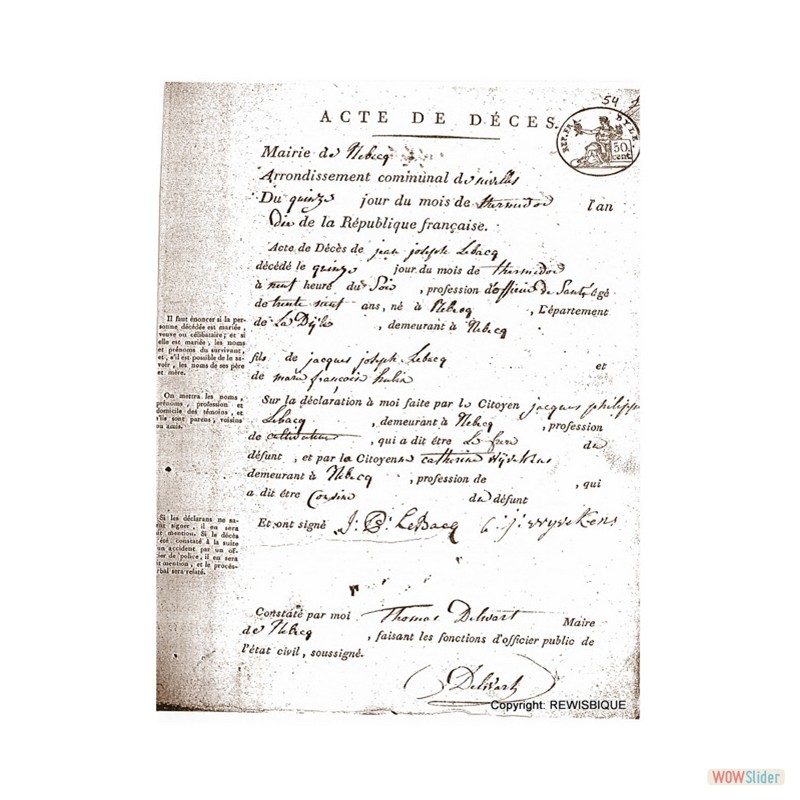 54
ACTE DE DÉCES.
REP. FRA. DYLE.
50 cent
Mairie de Rebecq
Arrondissement communal de nivelles
Du quinze jour du mois de thermidor l'an
dix de la République française.
Acte de Décès de jean joseph Lebacq
décédé le quinze jour du mois de thermidor
à neuf heure du Soir , profession d'officier de Santé âgé
de trente sept ans, né à Rebecq , Département
de La Dÿle , demeurant à Rebecq
fils de jacques joseph Lebacq et
de marie françoise hulin
Sur la déclaration à moi faite par le Citoyen jacques philippe
Lebacq , demeurant à Rebecq , profession
de cultivateur , qui a dit être Le frere du
défunt , et par la Citoyenne catherine wÿvekens
demeurant à Rebecq , profession de , qui
a dit être Cousine du défunt
Et ont signé J: P: LeBacq C: j: wyvekens
Constaté par moi Thomas Delwart Maire
de Rebecq , faisant les fonctions d'officier public de
l'état civil, soussigné.
Delwart
Il faut énoncer si la per-
sonne décédée est mariée,
veuve ou célibataire; et si
elle est mariée, les noms
et prénoms du survivant,
et, s'il est possible de le sa-
voir, les noms de ses père
et mère.
On mettra les noms,
prénoms, profession et
domicile des témoins, et
s'ils sont parens, voisins
ou amis.
Si les déclarans ne sa-
vent signer, il en sera
fait mention. Si le décès
a été constaté à la suite
d'un accident par un of-
ficier de police, il en sera
fait mention, et le procès-
verbal sera relaté.
Copyright: REWISBIQUE
WOWSlider